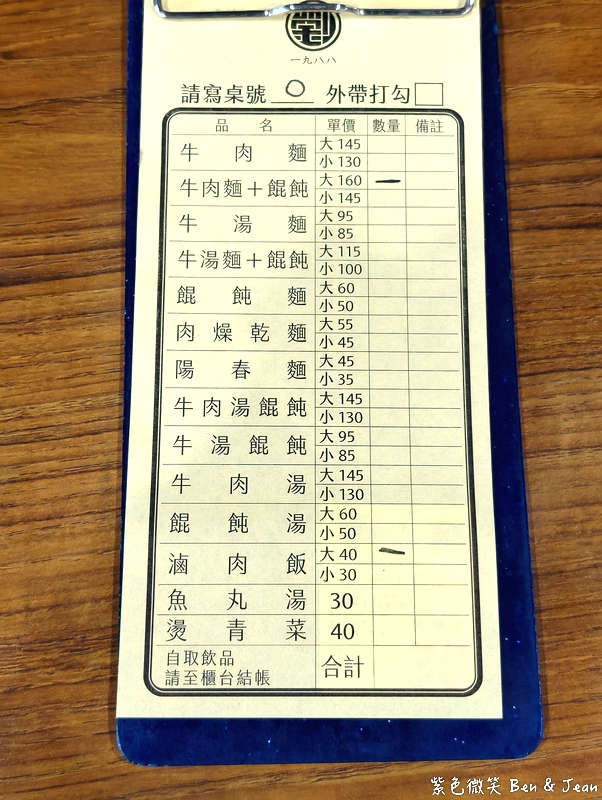 劉
一九八八
請寫桌號 O 外帶打勾
品名 單價 數量 備註
牛肉麵 大 145
小 130
牛肉麵+餛飩 大 160 一
小 145
牛湯麵 大 95
小 85
牛湯麵+餛飩 大 115
小 100
餛飩麵 大 60
小 50
肉燥乾麵 大 55
小 45
陽春麵 大 45
小 35
牛肉湯餛飩 大 145
小 130
牛湯餛飩 大 95
小 85
牛肉湯 大 145
小 130
餛飩湯 大 60
小 50
滷肉飯 大 40 一
小 30
魚丸湯 30
燙青菜 40
自取飲品
請至櫃台結帳 合計
紫色微笑 Ben & Jean